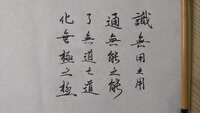 識無用之用
通無能之能
了無道之道
化無極之極